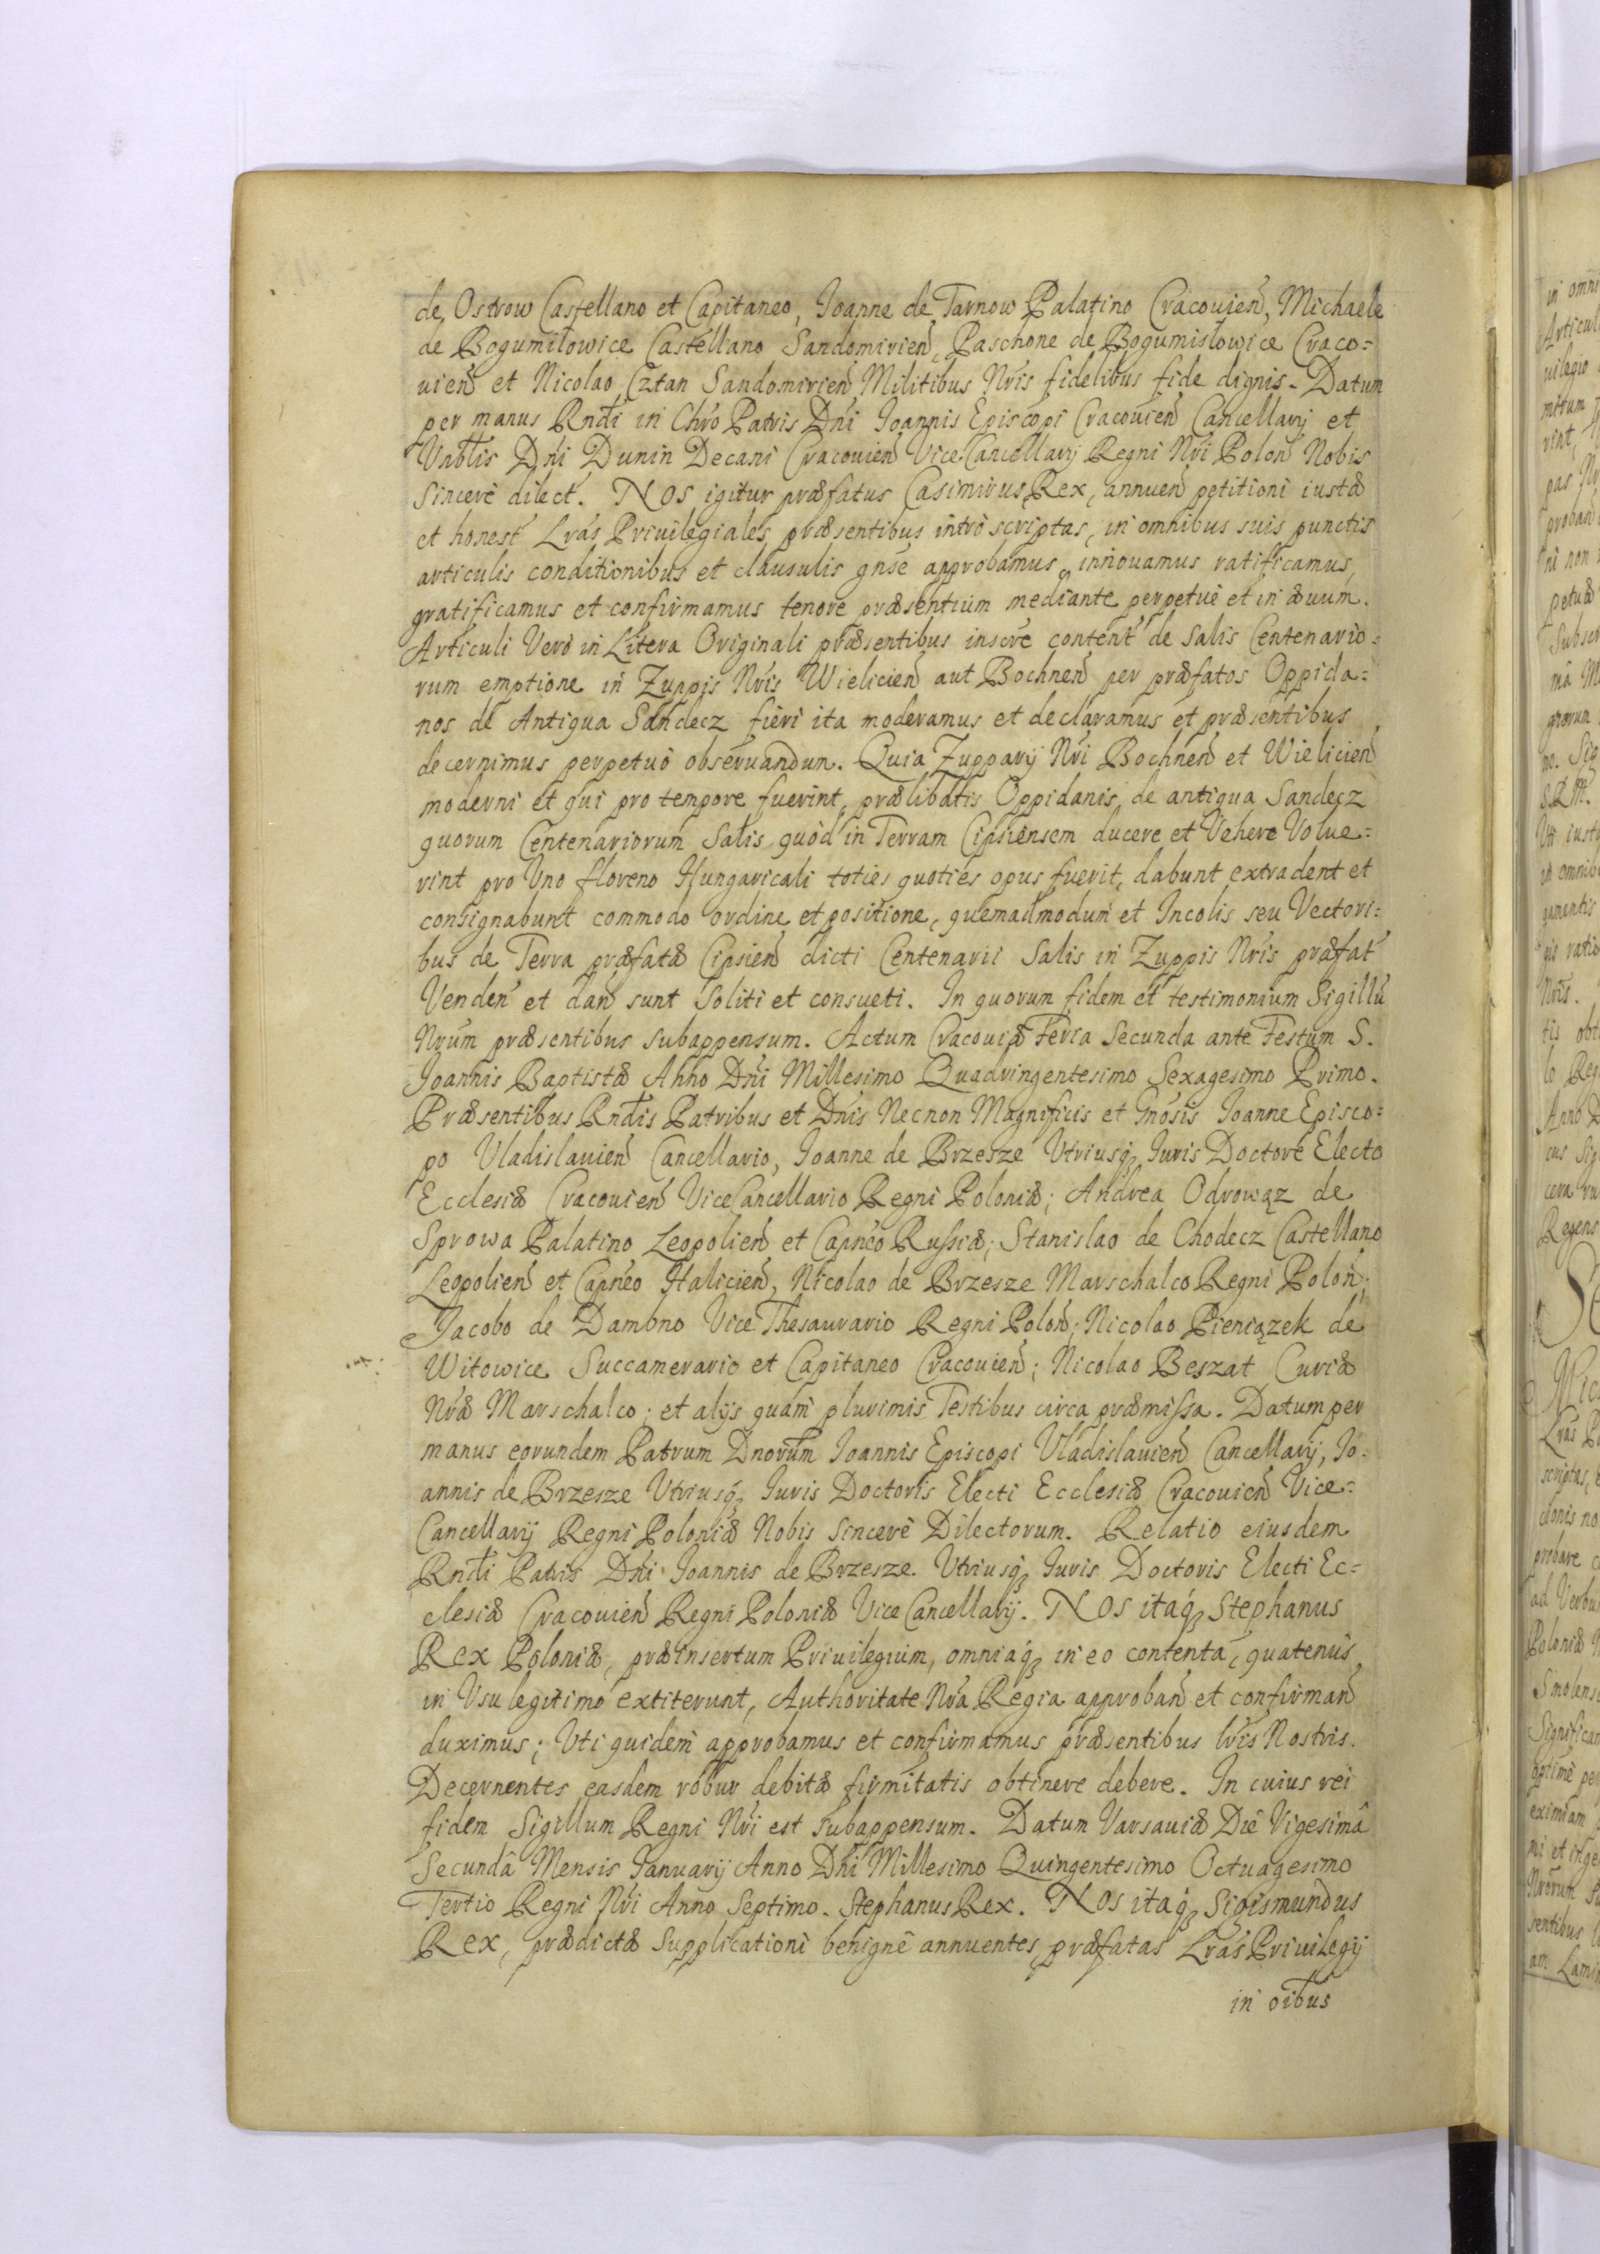 de Ostrow Castellano et Capitaneo, Joanne de Tarnow Palatino Cracouien, Michaele
de Bogumilowice Castellano Sandomirien, Paschone de Bogumislowice Craco=
uien et Nicolao Cztan Sandomirien Militibus Nris fidelibus fide dignis. Datum
per manus Rndi in Chro Patris Dni Joannis Episcopi Cracouien Cancellarij et
Vablis Dni Dunin Decani Cracouien ViceCancellarij Regni Nri Polon Nobis
sincerè dilect. Nos igitur præfatus Casimirus Rex, annuen petitioni iustæ
et honest Lras Priuilegiales præsentibus introscriptas, in omnibus suis punctis
articulis conditionibus et clausulis gnse approbamus innouamus ratificamus,
gratificamus et confirmamus tenore præsentium mediante perpetuè et in æuum.
Articuli Verò in Litera Originali præsentibus inserè content de Salis Centenario=
rum emptione in Zuppis Nris Wielicien aut Bochnen per præfatos Oppida=
nos de Antiqua Sandecz fieri ita moderamus et declaramus et præsentibus
decernimus perpetuò obseruandum. Quia Zupparij Nri Bochnen et Wielicien
moderni et qui pro tempore fuerint, prælibatis Oppidanis de antiqua Sandecz
quorum Centenariorum Salis quòd in Terram Cipsiensem ducere et Vehere Volue=
rint pro Vno floreno Hungaricali toties quoties opus fuerit, dabunt extradent et
consignabunt commodo ordine et positione, quemadmodum et Incolis seu Vectori=
bus de Terra præfatæ Cipsien dicti Centenarii Salis in Zuppis Nris præfat
Venden et dan sunt soliti et consueti. In quorum fidem et testimonium Sigillu
Nrum præsentibus subappensum. Actum Cracouiæ Feria Secunda ante Festum S.
Joannis Baptistæ Anno Dni Millesimo Quadringentesimo Sexagesimo Primo.
Præsentibus Rndis Patribus et Dnis Necnon Magnificis et Gnosis Joanne Episco=
po Vladislauien Cancellario, Joanne de Brzesze Vtriusq Iuris Doctore Electo
Ecclesiæ Cracouien ViceCancellario Regni Poloniæ; Andrea Odrowąz de
Sprowa Palatino Leopolien et Capneo Russiæ; Stanislao de Chodecz Castellano
Leopolien et Capneo Halicien, Nicolao de Brzesze Marschalco Regni Polon;
Jacobo de Dambno ViceThesaurario Regni Polon; Nicolao Pieniązek de
Witowice Succamerario et Capitaneo Cracouien; Nicolao Beszat Curiæ
Nræ Marschalco; et alijs quàm plurimis Testibus circa præmissa. Datum per
manus eorundem Patrum Dnorum Joannis Episcopi Vladislauien Cancellarij, Jo=
annis de Brzesze Vtriusq Iuris Doctoris Electi Ecclesiæ Cracouien Vice=
Cancellarij Regni Poloniæ Nobis Sincerè Dilectorum. Relatio eiusdem
Rndi Patris Dni Joannis de Brzesze Vtriusq Iuris Doctoris Electi Ec=
clesiæ Cracouien Regni Poloniæ ViceCancellarij. Nos itaq Stephanus
Rex Poloniæ, præinsertum Priuilegium, omniaq in eo contenta, quatenus
in Vsu legitimo extiterunt, Authoritate Nra Regia approban et confirman
duximus; Vti quidem approbamus et confirmamus præsentibus lris Nostris.
Decernentes easdem robur debitæ firmitatis obtinere debere. In cuius rei
fidem Sigillum Regni Nri est subappensum. Datum Varsauiæ Die Vigesimâ
Secundâ Mensis Ianuarij Anno Dni Millesimo Quingentesimo Octuagesimo
Tertio Regni Nri Anno Septimo. Stephanus Rex. Nos itaq Sigismundus
Rex, prædictæ Supplicationi benignè annuentes, præfatas Lras Priuilegij
in oibus